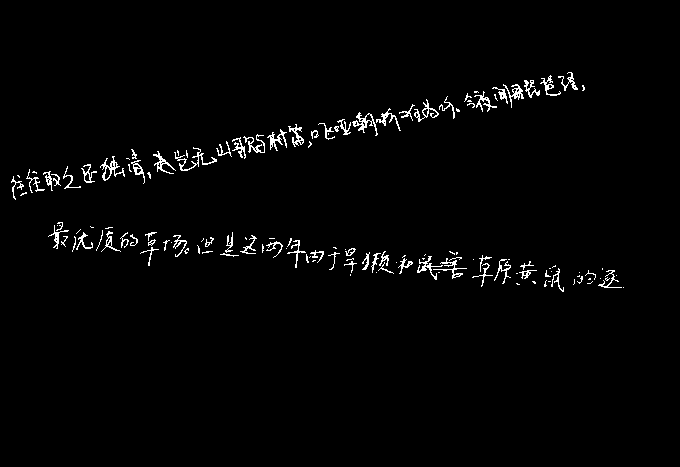 往往取之还独清,岂无山歌与村笛,呕哑嘲哳难为听。今夜闻君琵琶语,
最优质的草场。但是这两年由于旱獭和草原黄鼠的逐